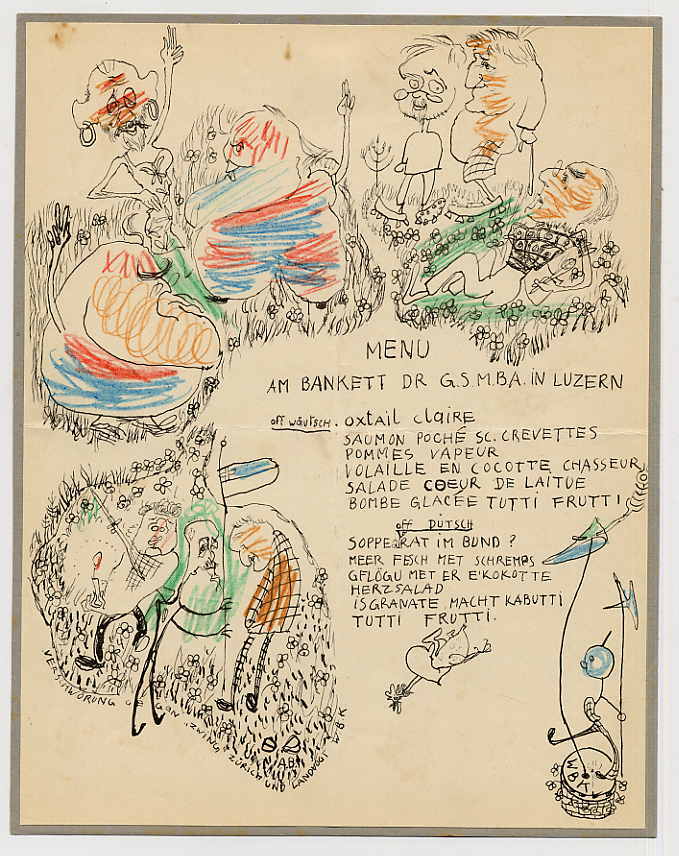 MENU
AM BANKETT DR G.S.M.BA. IN LUZERN
off wäutsch. oxtail claire
SAUMON POCHÉ SC. CREVETTES
POMMES VAPEUR
VOLAILLE EN COCOTTE CHASSEUR
SALADE COEUR DE LAITUE
BOMBE GLACÉE TUTTI FRUTTI
off DÜTSCH
SOPPE RAT IM BUND ?
MEER FESCH MET SCHREMPS
GFLÖGU MET ER E'KOKOTTE
HERZSALAD
ISGRANATE MACHT KABUTTI
TUTTI FRUTTI.
VERSCHWÖRUNG GEGEN ZWING ZÜRICH UND LANDVOGT WBK
A.B.
WBK